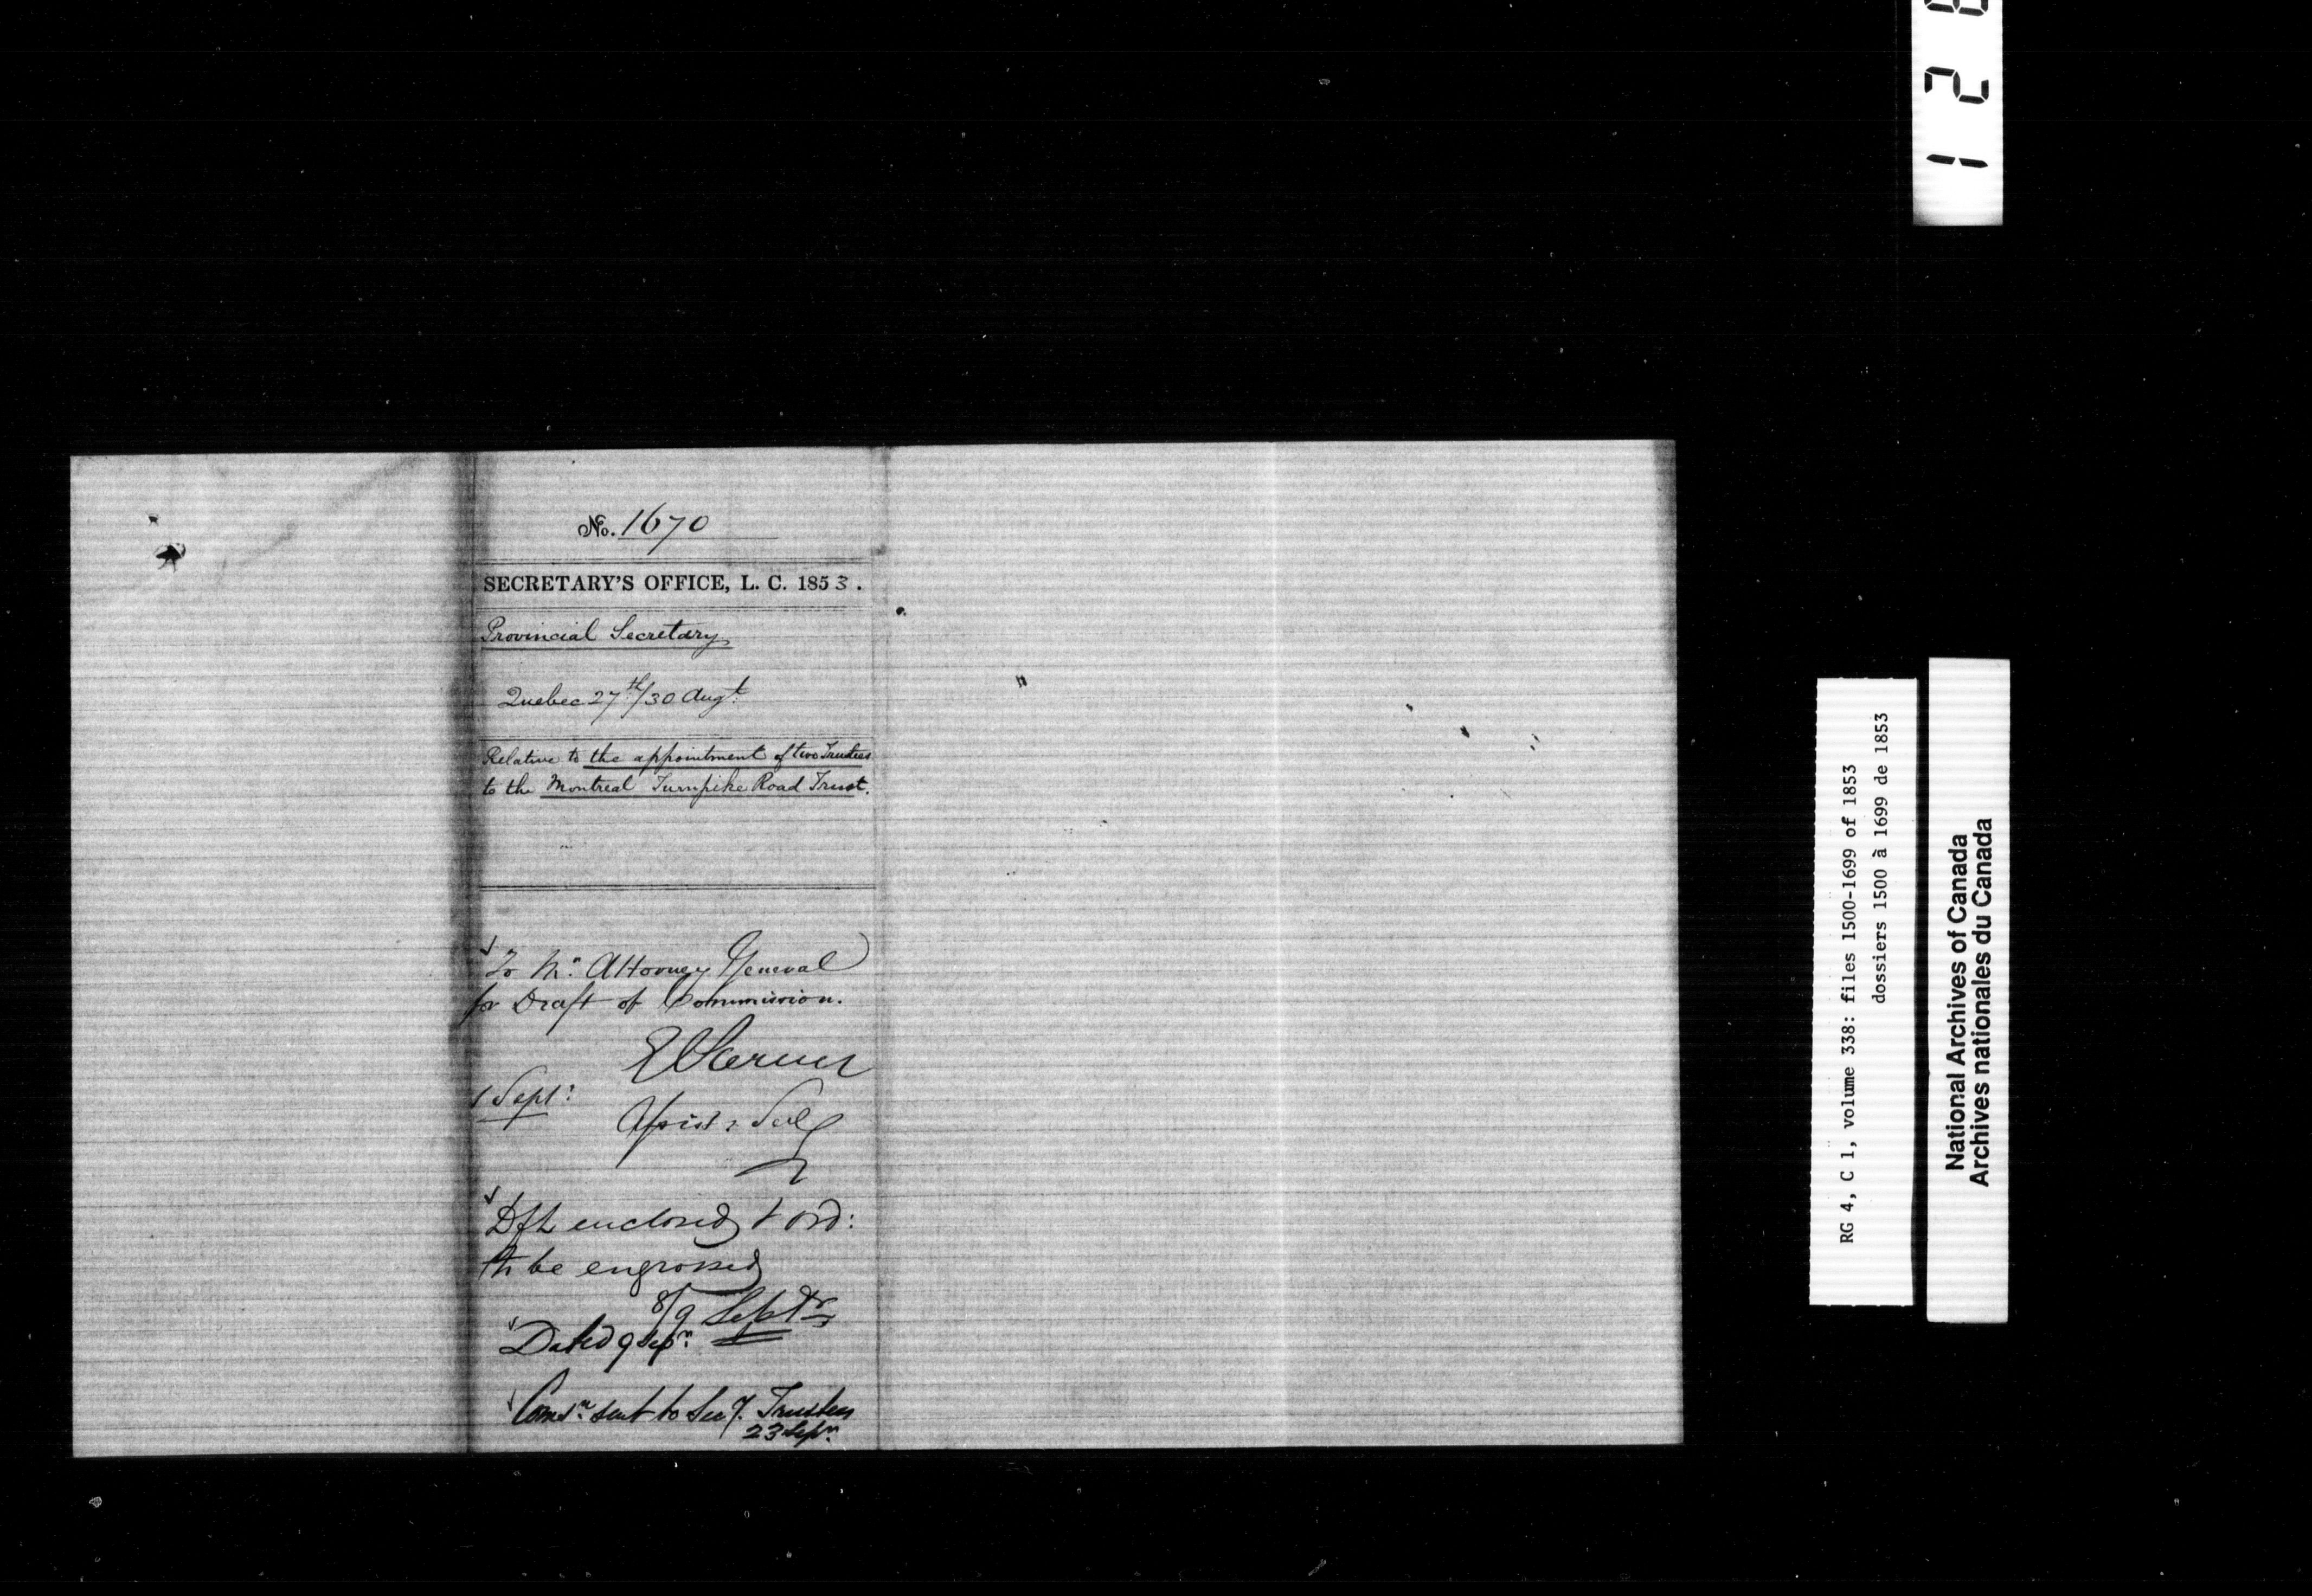 No. 1670
SECRETARY'S OFFICE, L. C. 1853.
Provincial Secretary
Quebec 27th/30 Augt.
Relative to the appointment of two Trustees
to the Montreal Turnpike Road Trust.
To Mr. Attorney General
for Draft of Commission.
1 Sept:
Assist: Secy
Dft enclosed & ord:
to be engrossed
8/9 Septr
Dated 9 Sepr.
Comsn. sent to Secy. Trustees
23 Sepr.
RG 4, C 1, volume 338: files 1500-1699 of 1853
dossiers 1500 à 1699 de 1853
National Archives of Canada
Archives nationales du Canada
1 2 8